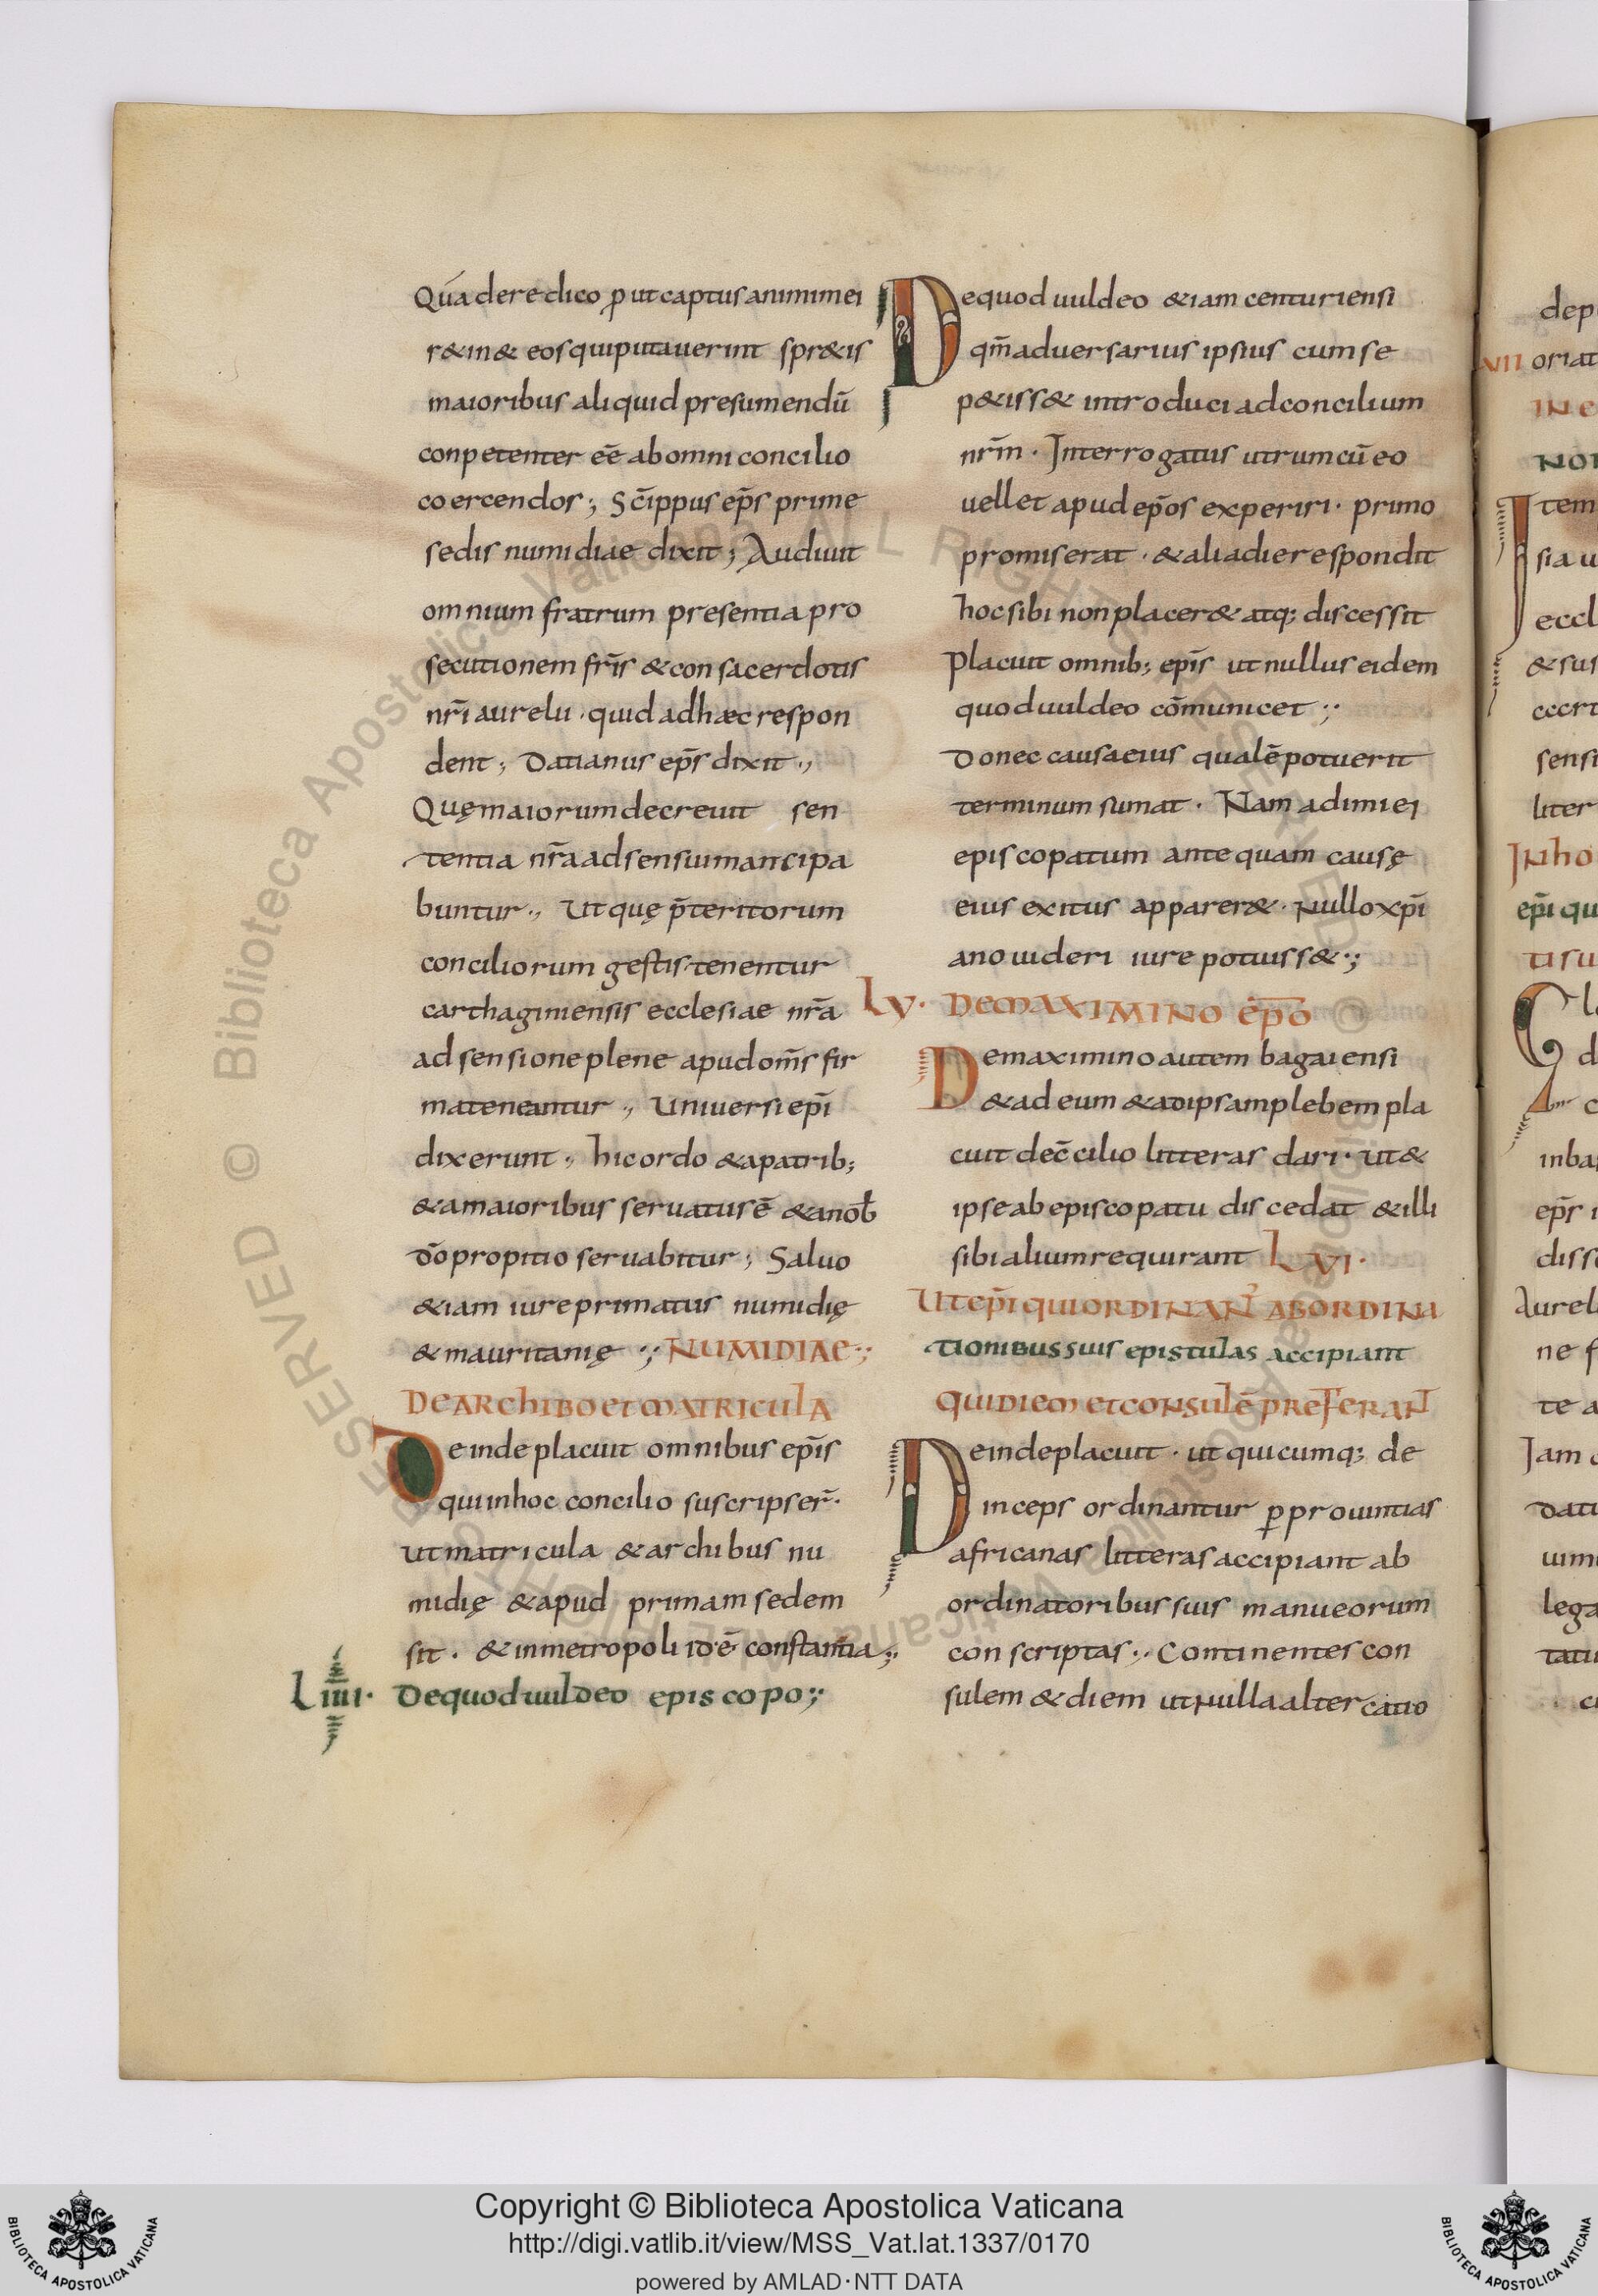 Quá de re dico ꝓut captus animi mei
r&in& eos qui putauerint spr&is
maioribus aliquid presumendū
conpetenter eē ab omni concilio
coercendos; Sc̄ippus ep̄s prime
sedis numidiae dixit; Audiuit
omnium fratrum presentia pro
secutionem fr̄is & consacerdotis
nr̄i aurelii · quid ad hæc respon
dent; Datianus ep̄s dixit·,
Quę maiorum decreuit sen
tentia nr̄a adsensui mancipa
buntur·, Ut quę p̄teritorum
conciliorum gestis tenentur
carthaginiensis ecclesiae nr̄a
adsensione plene apud om̄s fir
mateneantur·, Uniuersi ep̄i
dixerunt·, hic ordo & a patrib;
& a maioribus seruatus ē & a nob̄
dō propitio seruabitur; Saluo
&iam iure primatus numidię
& mauritanię ·,· NUMIDIAE·,·
DE ARCHIBO ET MATRICULA
Deinde placuit omnibus ep̄is
qui in hoc concilio suscripser̄·
ut matricula & archibus nu
midię & apud primam sedem
sit · & in metropoli id·ē· constantia·,·
LIIII· De quoduuldeo episcopo·,·
De quoduuldeo &iam centuriensi
qm̄ aduersarius ipsius cum se
p&iss& introduci ad concilium
nr̄m · Interrogatus utrum cū eo
uellet apud ep̄os experiri · primo
promiserat · & alia die respondit
hoc sibi non placer& atq; discessit
Placuit omnib; ep̄is ut nullus eidem
quoduuldeo cōmunicet ·,·
Donec causa eius qualē potuerit
terminum sumat · Nam adimi ei
episcopatum ante quam causę
eius exitus apparer& · Nullo xp̄i
ano uideri iure potuiss&·,·
LV· DE MAXIMINO EP̄O
De maximino autem bagaiensi
& ad eum & ad ipsam plebem pla
cuit dec̄cilio litteras dari · ut &
ipse ab episcopatu discedat & illi
sibi alium requirant LVI·
UT EP̄I QUI ORDINANT̉ AB ORDINA
TIONIBUS SUIS EPISTULAS ACCIPIANT
QUI DIEM ET CONSULĒ PREFERANT
Deinde placuit · ut quicumq; de
inceps ordinantur ꝑ prouintias
africanas litteras accipiant ab
ordinatoribus suis manu eorum
conscriptas·,· Continentes con
sulem & diem ut nulla altercatio
dep
VII oriat
IN E
NON
Item
sia u
eccl
& sus
sensi
liter
IN ho
ep̄i qu
ti su
inba
ep̄s i
diss
Aurel
ne f
te a
Iam
dati
uim
lega
tati
Copyright © Biblioteca Apostolica Vaticana
http://digi.vatlib.it/view/MSS_Vat.lat.1337/0170
powered by AMLAD·NTT DATA
BIBLIOTECA APOSTOLICA VATICANA
BIBLIOTECA APOSTOLICA VATICANA